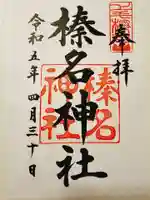 奉拝
榛名神社
令和五年四月三十日
榛名
神社